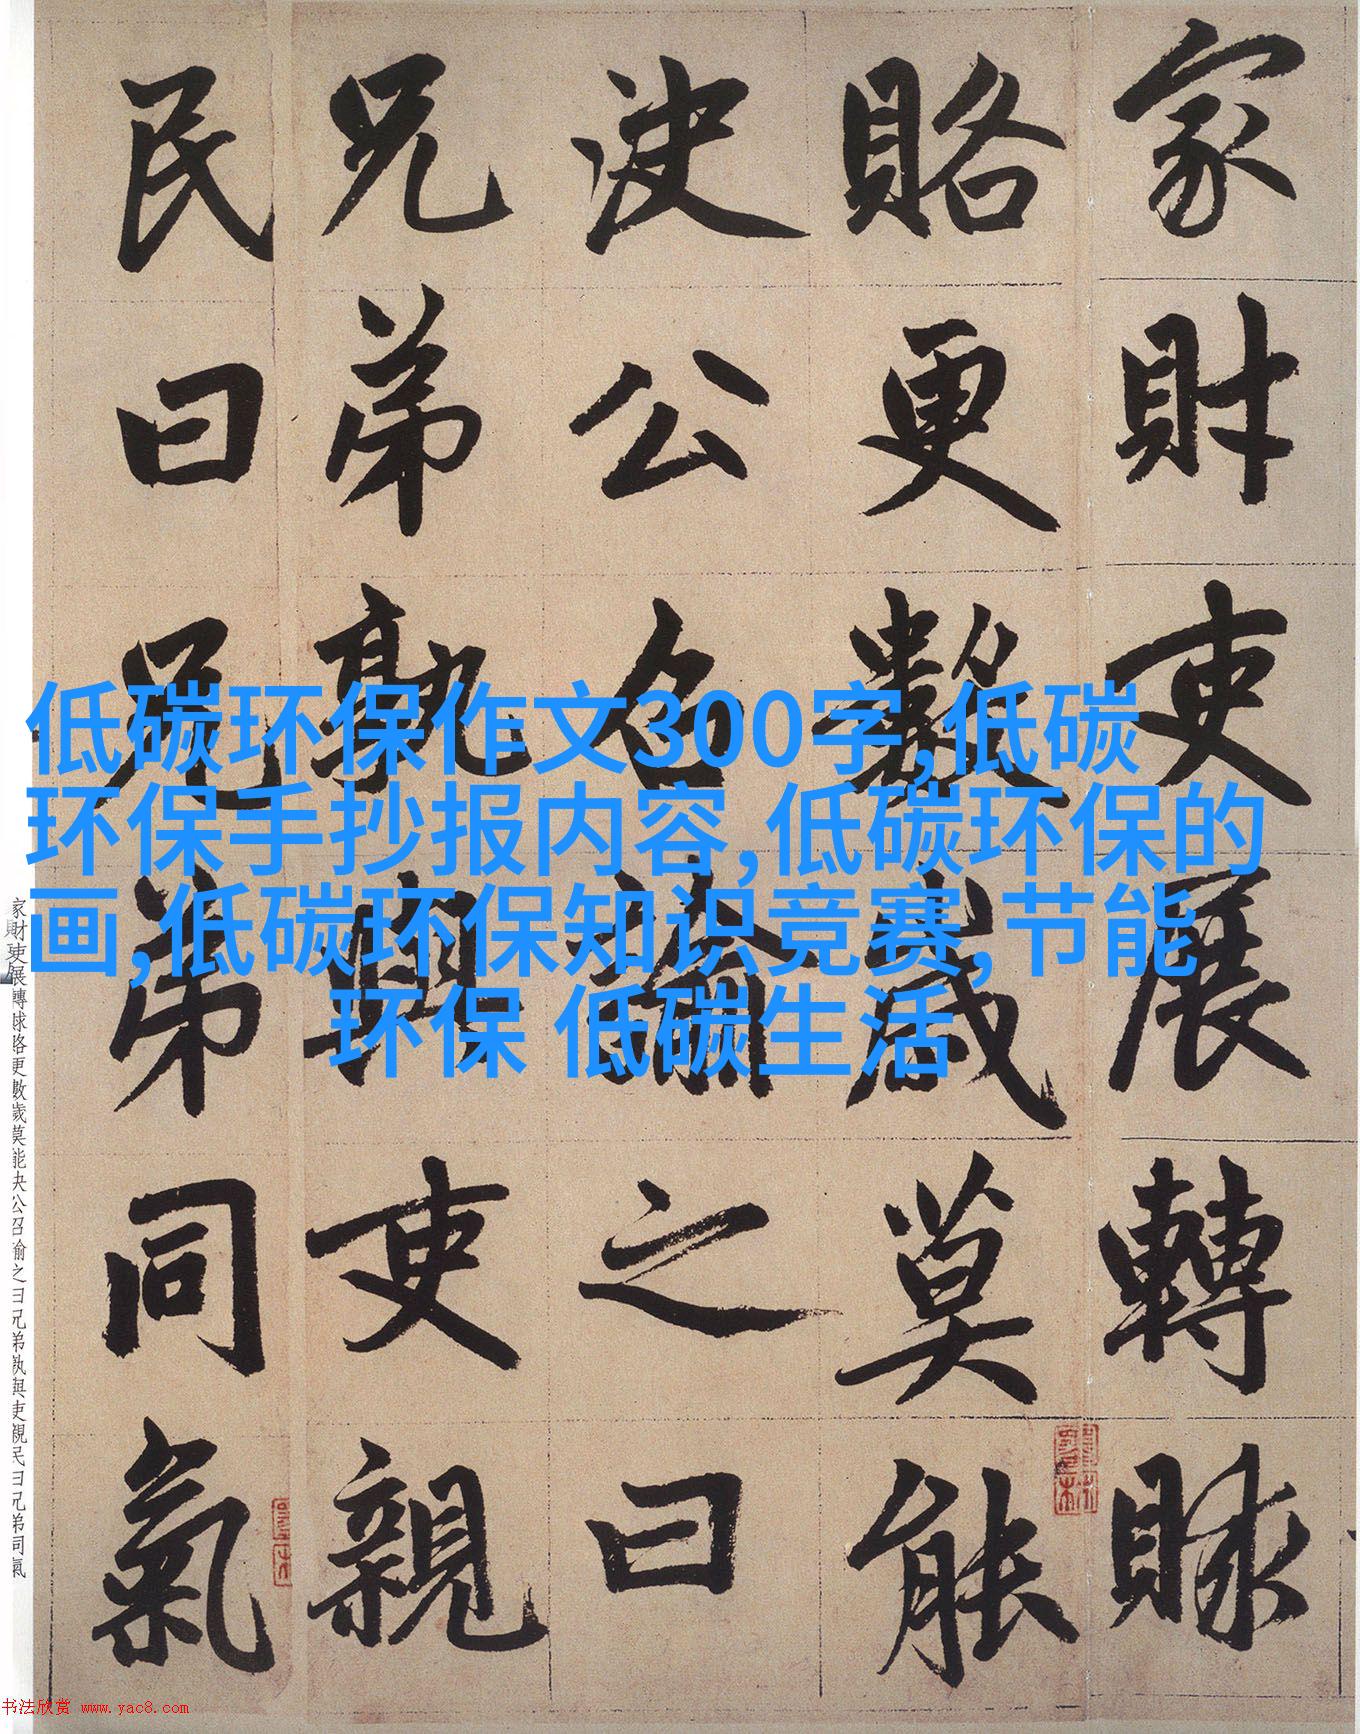 家財吏展轉賕
賂更數歲莫能
決公召諭之曰
兄弟孰與吏親
民曰兄弟同氣
低碳环保作文300字,低碳
环保手抄报内容,低碳环保的
画,低碳环保知识竞赛,节能
环保 低碳生活
家財吏展轉賕賂更數歲莫能決公召諭之曰兄弟孰與吏親民曰兄弟同氣
书法欣赏 www.yac8.com